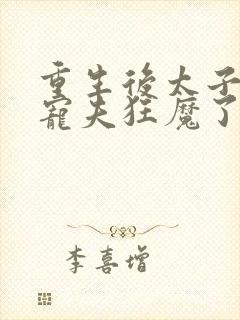 重生後太子
寵夫狂魔了
李喜增